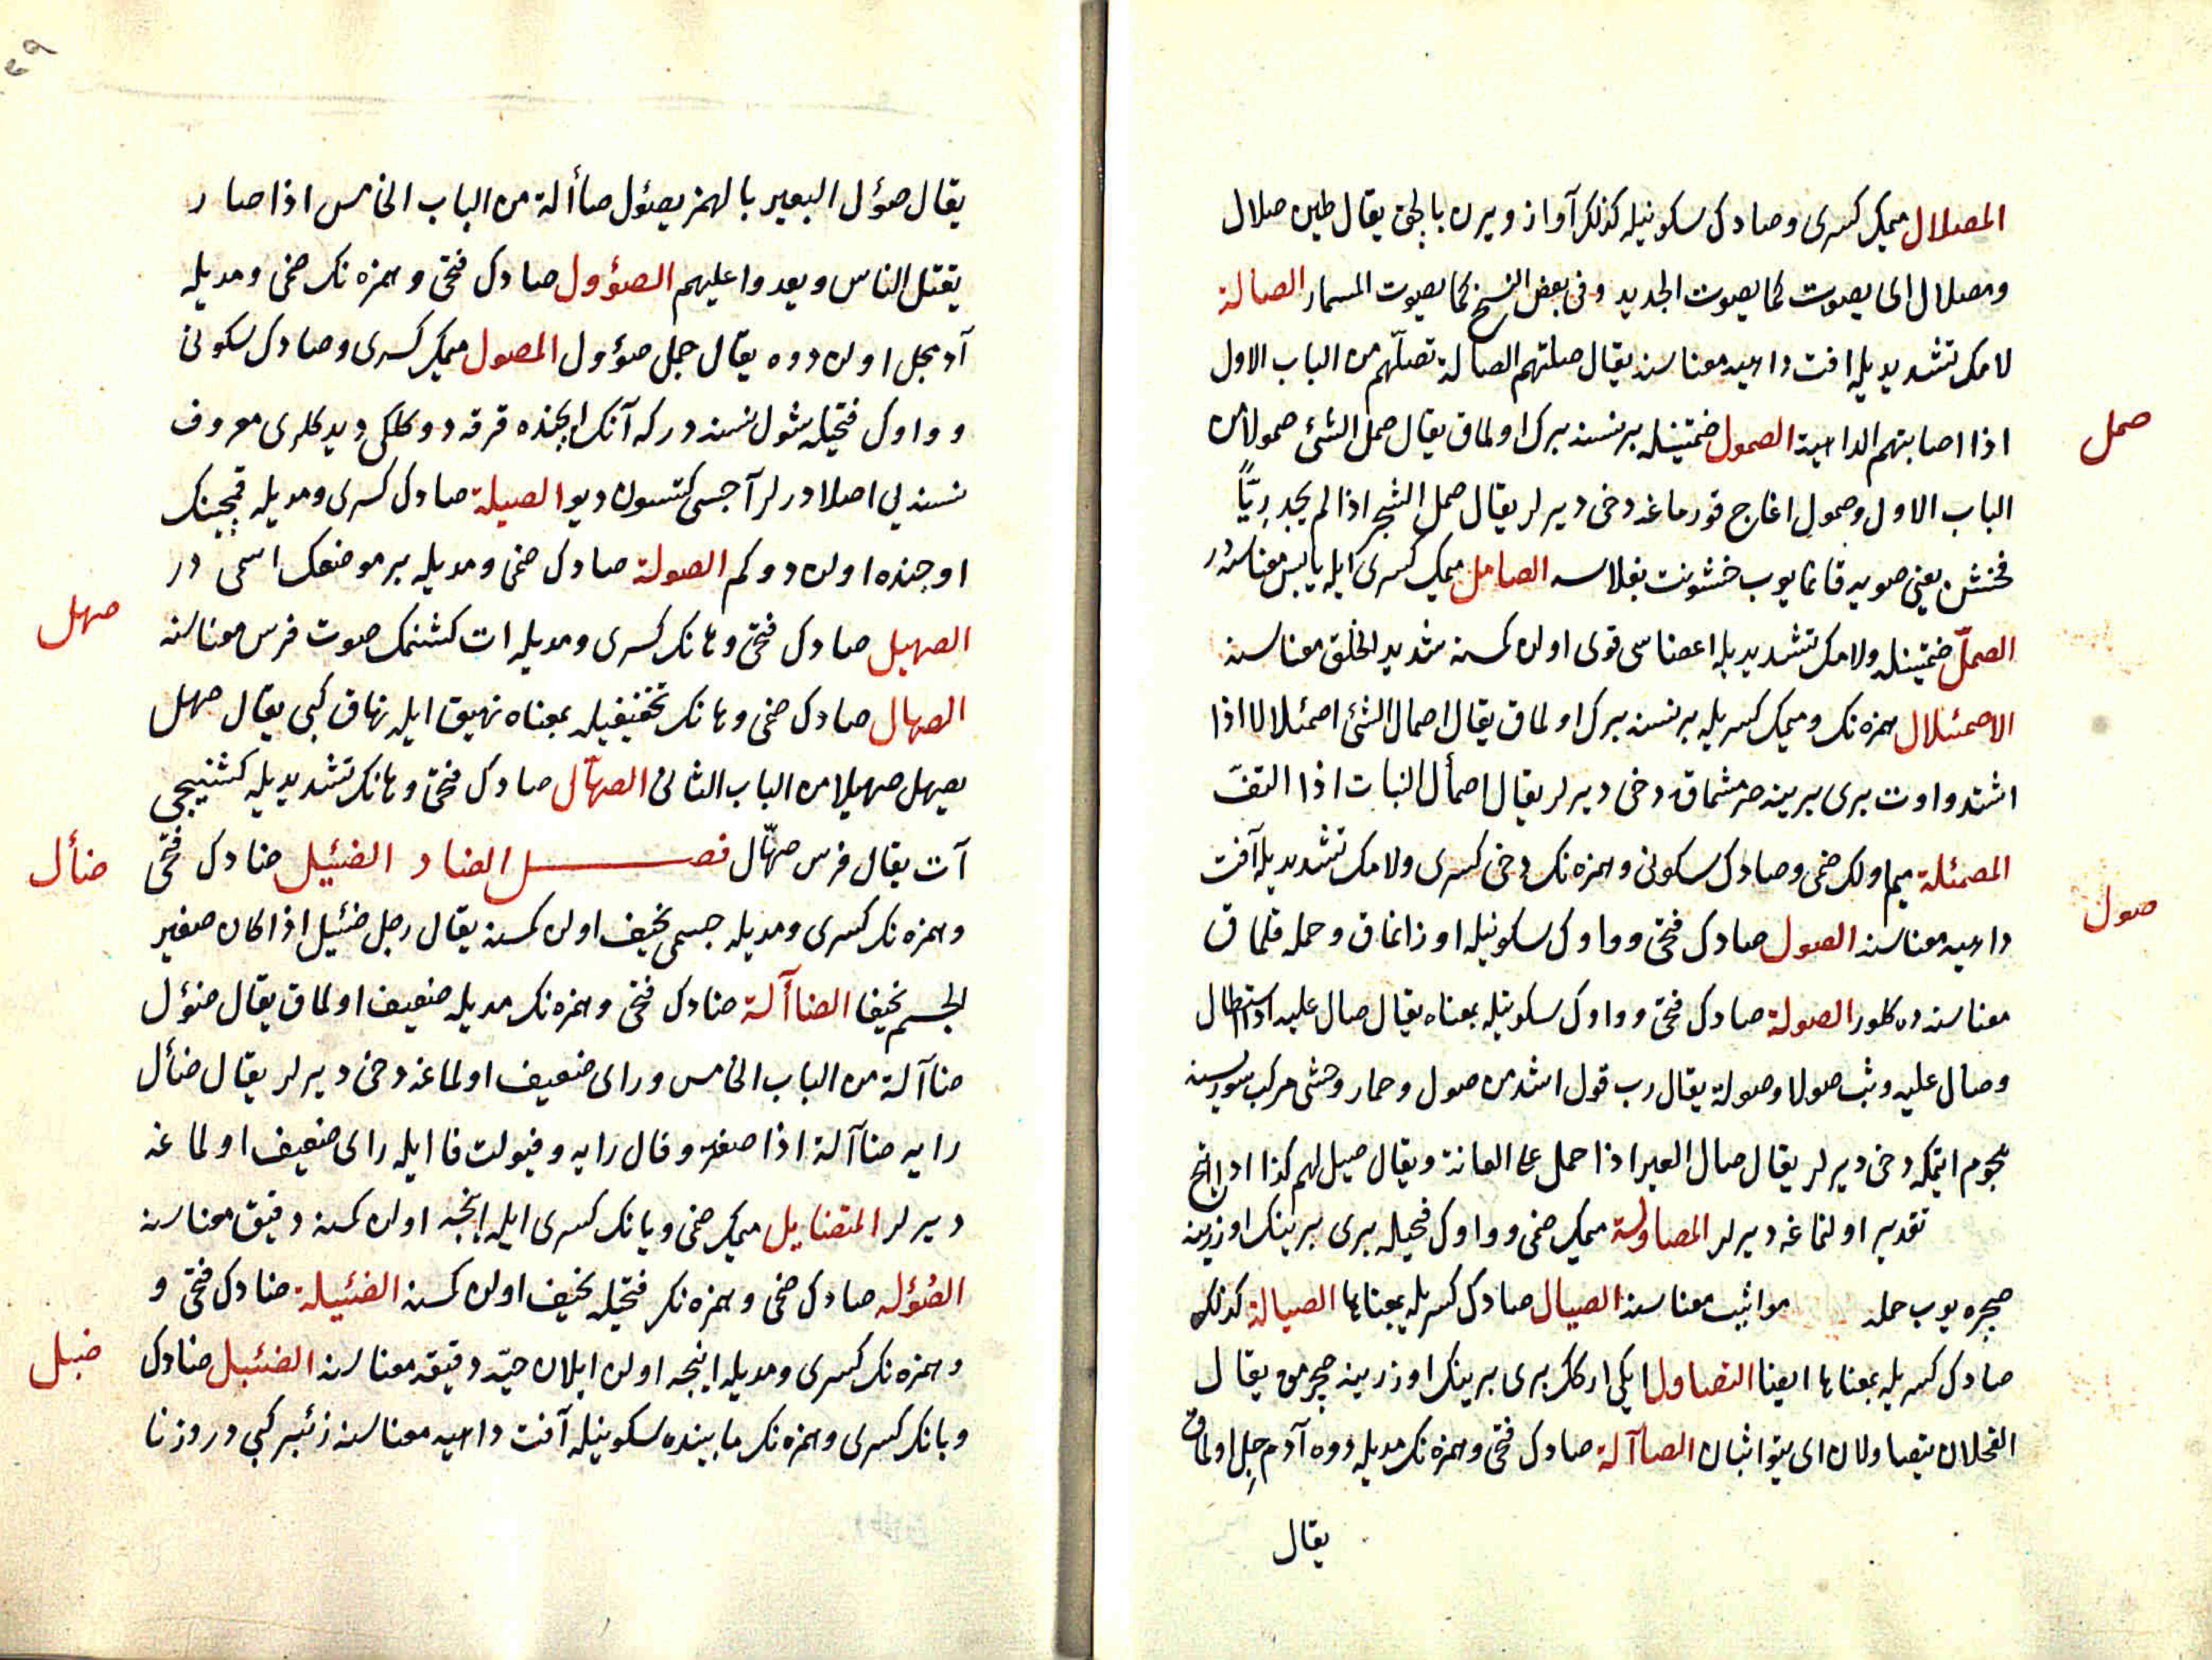 المصلال ميمك كسرى وصادك سكونيله كذلك آواز ويرن بالجق يقال طين صلال
ومصلال اى يصوت كما يصوت الجديد وفى بعض النسخ كما يصوت المسمار الصالة
لامك تشديديله افت داهيه معناسنه يقال صلتهم الصالة تصلّهم من الباب الاول
صمل
اذا اصابتهم الداهية الصمول ضمتينله بر نسنه برك اولماق يقال صمل الشئ صمولا من
الباب الاول وصمول اغاج قورماغه دخى ديرلر يقال صمل الشجر اذا لم يجد ريّاً
فخشن يعنى صويه قانمايوب خشونت بغلاسه الصامل ميمك كسرى ايله يابس معناسنه در
الصملّ ضمتينله ولامك تشديديله اعضاسى قوى اولن كمسنه شديد الخلق معناسنه
الاصمئلال همزه نك وميمك كسريله بر نسنه برك اولماق يقال اصمال الشئ اصمئلالا اذا
اشتد واوت برى برينه صرمشماق دخى ديرلر يقال اصمأل النبات اذا التفّ
المصمئلة ميم اولك ضمى وصادك سكونى وهمزه نك دخى كسرى ولامك تشديديله آفت
صول
داهيه معناسنه الصول صادك فتحى وواوك سكونيله اوزانماق وحمله قلماق
معناسنه ده كلور الصولة صادك فتحى وواوك سكونيله بمعناه يقال صال عليه اذا استطال
وصال عليه وثب صولا وصولة يقال رب قول اشد من صول وحمار وحشى مركب سوريسنه
هجوم ايتمكه دخى ديرلر يقال صال العير اذا حمل على العانة ويقال صيل لهم كذا اى اتيح
تقدير اولنماغه ديرلر المصاولة ميمك ضمى وواوك فتحيله برى برينك اوزرينه
صچره يوب حمله مواثبت معناسنه الصيال صادك كسريله بمعناها الصيالة كذلك
صادك كسريله بمعناها ايضا التصاول ايكى اركك برى برينك اوزرينه صچرمق يقال
الفحلان يتصاولان اى يتواثبان الصاآلة صادك فتحى وهمزه نك مديله دوه آدم جل اولماق
يقال
يقال صؤل البعير بالهمز يصئول صاألة من الباب الخامس اذا صار
يقتل الناس ويعدوا عليهم الصؤول صادك فتحى وهمزه نك ضمى ومديله
آدمجل اولن دوه يقال جمل صؤول المصول ميمك كسرى وصادك سكونى
وواوك فتحيله شول نسنه در كه آنك ايچنده قرقه دوكلكى ديدكلرى معروف
نسنه يى اصلادرلر آجسى كتسون ديو الصيلة صادك كسرى ومديله قمچينك
اوجنده اولن دوكم الصولة صادك ضمى ومديله بر موضعك اسمى در
صهل
الصهيل صادك فتحى وهانك كسرى ومديله ات كشنمك صوت فرس معناسنه
الصهال صادك ضمى وهانك تخفيفيله بمعناه نهيق ايله نهاق كبى يقال صهل
يصهل صهيلا من الباب الثانى الصهّال صادك فتحى وهانك تشديديله كشنيجى
ضأل
آت يقال فرس صهّال فصــل الضاد الضئيل ضادك فتحى
وهمزه نك كسرى ومديله جسمى نخيف اولن كمسنه يقال رجل ضئيل اذا كان صغير
الجسم نخيفا الضاآلة ضادك فتحى وهمزه نك مديله ضعيف اولماق يقال ضئول
ضاآلة من الباب الخامس وراى ضعيف اولماغه دخى ديرلر يقال ضأل
رايه ضاآلة اذا صغر وفال رايه وفيولت فا ايله راى ضعيف اولماغه
ديرلر المتضايل ميمك ضمى ويانك كسرى ايله اينجه اولن كمسنه دقيق معناسنه
الضؤله صادك ضمى وهمزه نك فتحيله نخيف اولن كمسنه الضئيلة ضادك فتحى و
ضبل
وهمزه نك كسرى ومديله اينجه اولن ايلان حيّه دقيقه معناسنه الضئبل ضادك
وبانك كسرى وهمزه نك مابينده سكونيله آفت داهيه معناسنه زئبر كبى در وزنا